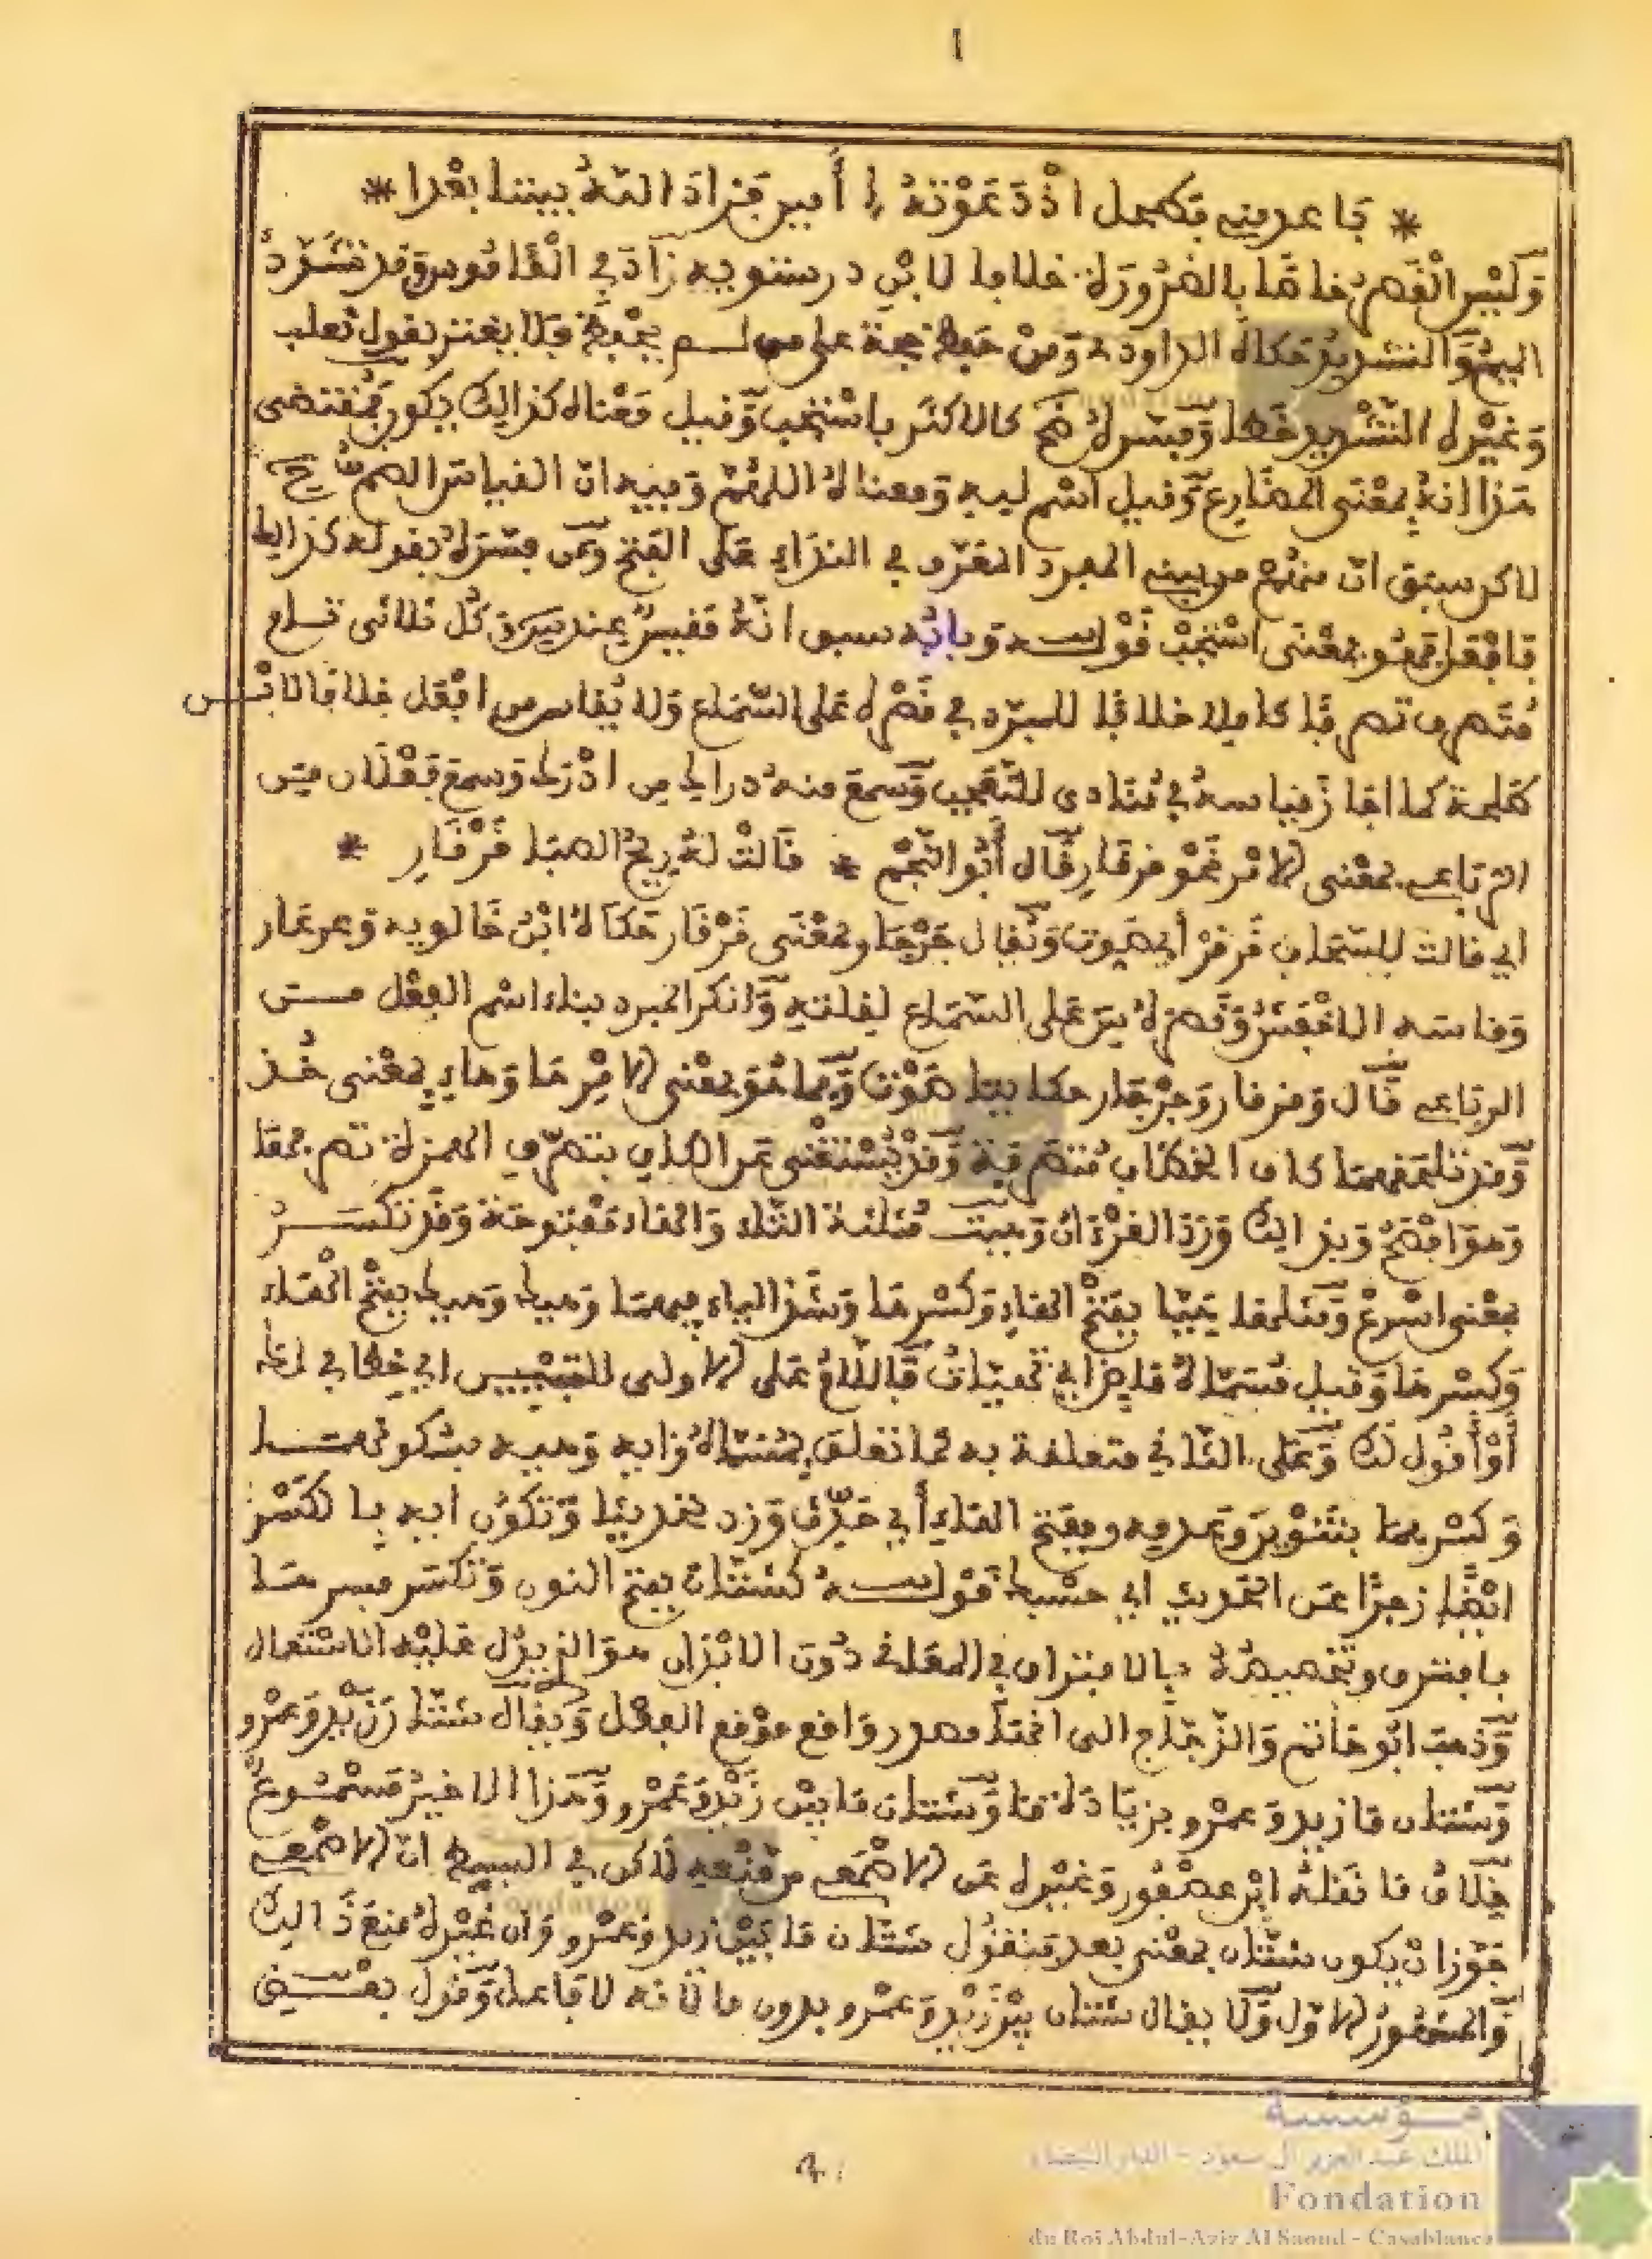 ١
* تباعد مني فطحل إذ دعوته * أمين فزاد الله بيننا بعدا *
وليس القصر خاصا بالضرورة خلافا لابن درستويه زاد في القاموس وقد تشدد
الميم والتشديد حكاه الداودي ومن حفظ حجة على من لم يحفظ فلا يغتر بقول ثعلب
وغيره التشديد خطأ وفسره ضح كالاكثر باستجب وقيل معناه كذالك يكون فمقتضى
هذا انه بمعنى المضارع وقيل اسم لله ومعناه اللهم وفيه ان القياس الضم ضح
لاكن سبق ان منهم من يبني المفرد المعرف في النداء على الفتح وعن فسره بقوله كذالك
فافعل فهو بمعنى استجب قوله وبابه سبق انه مقيس عند س من كل ثلاثي تام
متصرف تصرفا كاملا خلافا للمبرد في قصره على السماع ولا يقاس من افعل خلافا لابن
طلحة كما اجاز قياسه في للتعجب وسمع منه دراك من ادرك وسمع فعلال من
الرباعي بمعنى الامر نحو قرقار قال أبو النجم * قالت له ريح الصبا قرقار *
اي قالت للسحاب قرقر أي صوت ويقال جرجار بمعنى قرقار حكاه ابن خالويه وعرعار
وقاسه الاخفش وقصره س على السماع لقلته وانكر المبرد بناء اسم الفعل من
الرباعي قال وقرقار وجرجار حكايتا صوت وبما هو بمعنى الامر ها وهاء بمعنى خذ
وقد تلحقهما كاف الخطاب متصرفة وقد يستغنى عن الكاف بتصرف الهمزة تصرفها
وهو افصح وبذالك ورد القرءان وهيت مثلثة التاء والهاء مفتوحة وقد تكسر
بمعنى اسرع ومثلها هيا بفتح الهاء وكسرها وشد الياء فيهما وهيك وهيك بفتح الهاء
وكسرها وقيل مسماه فاللام على الاولى للتبيين اي خطابي لك
أو أقول لك وعلى الثاني متعلقة به كما تتعلق بمسماه وايه وهيه بسكونهما
وكسرهما بتنوين وعدمه وبفتح الهاء أي حدث وزد حديثا وتكون ايه بالكسر
ايضا زجرا عن الحديث اي حسبك قوله كشتان بفتح النون وتكسر فسرها
بافترق وتخصيصه بالافتراق في المعاني دون الابدان هو الذي يدل عليه الاستعمال
وذهب ابو حاتم والزجاج الى انها مصدر واقع موقع الفعل ويقال شتان زيد وعمرو
وشتان ما زيد وعمرو بزيادة ما وشتان ما بين زيد وعمرو وهذا الاخير مسموع
خلاف ما نقله ابن عصفور وغيره عن الاصمعي من منعه لاكن في البسيط ان الاصمعي
جوز ان يكون شتان بمعنى بعد فتقول شتان ما بين زيد وعمرو وان غيره منع ذالك
والمشهور الاول ولا يقال شتان بين زيد وعمرو بدون ما لانه لا فاعل وقول بعض
مؤسسة
الملك عبد العزيز آل سعود - الدار البيضاء
Fondation
du Roi Abdul-Aziz Al Saoud - Casablanca